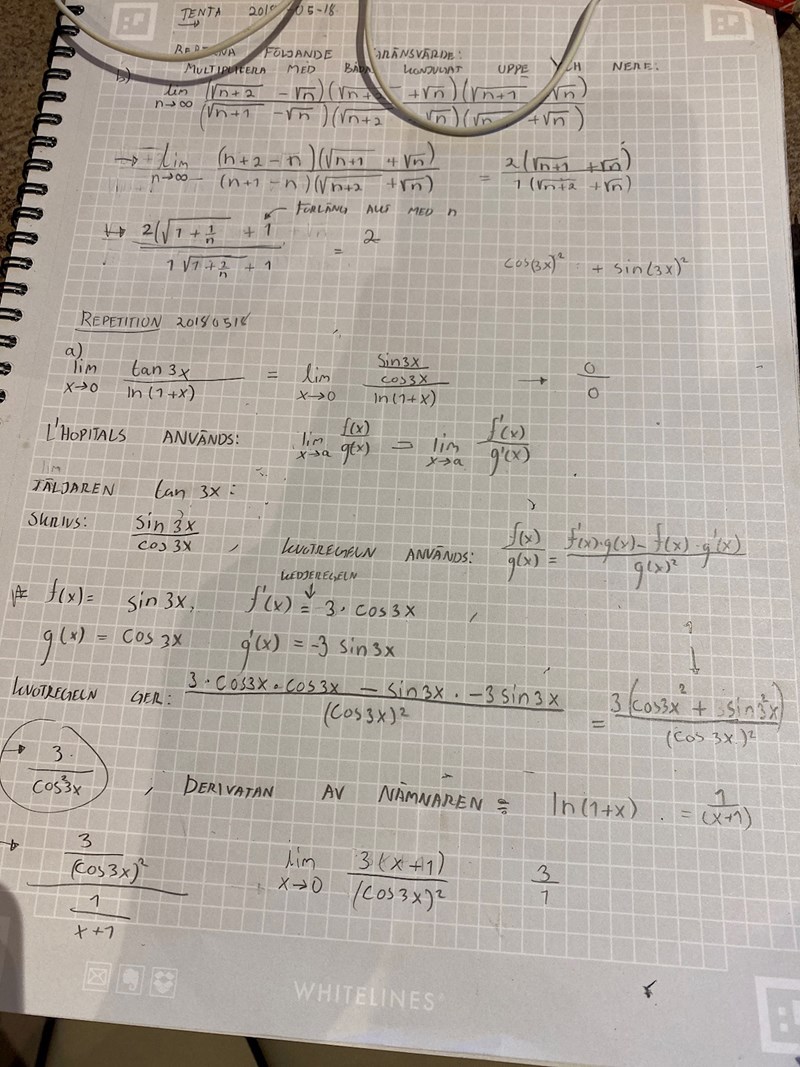 TENTA 2018-05-18
FÖLJANDE GRÄNSVÄRDE:
b) MULTIPLICERA MED BÅDA KONJUGAT UPPE OCH NERE.
lim n→∞ (√n+2 - √n)(√n+2 + √n)(√n+1 √n) / (√n+1 - √n)(√n+2 √n)(√n+1 + √n)
→ lim n→∞ (n+2 - n)(√n+1 + √n) / (n+1 - n)(√n+2 + √n) = 2(√n+1 + √n) / 1(√n+2 + √n)
FÖRLÄNG MED n
↦ 2(√1+1/n + 1 / 1√1+2/n + 1 = 2
cos(3x)² + sin(3x)²
REPETITION 20180518
a)
lim x→0 tan 3x / ln(1+x) = lim x→0 (sin3x / cos3x) / ln(1+x) → 0/0
L'HOPITALS ANVÄNDS: lim x→a f(x)/g(x) = lim x→a f'(x)/g'(x)
lim
TÄLJAREN tan 3x:
SKRIVS: sin 3x / cos 3x , KVOTREGELN ANVÄNDS: f(x)/g(x) = f'(x)·g(x) - f(x)·g'(x) / g(x)²
KEDJEREGELN
f(x) = sin 3x, f'(x) = 3 · cos 3x ,
g(x) = cos 3x g'(x) = -3 sin 3x
KVOTREGELN GER: 3 · cos3x · cos3x - sin3x · -3 sin 3x / (cos 3x)² = 3(cos3x² + sin²3x) / (cos 3x)²
→ 3 / cos²3x , DERIVATAN AV NÄMNAREN = ln(1+x) = 1/(x+1)
→ 3/(cos3x)² / 1/x+1 lim x→0 3(x+1) / (cos3x)² 3/1
WHITELINES®